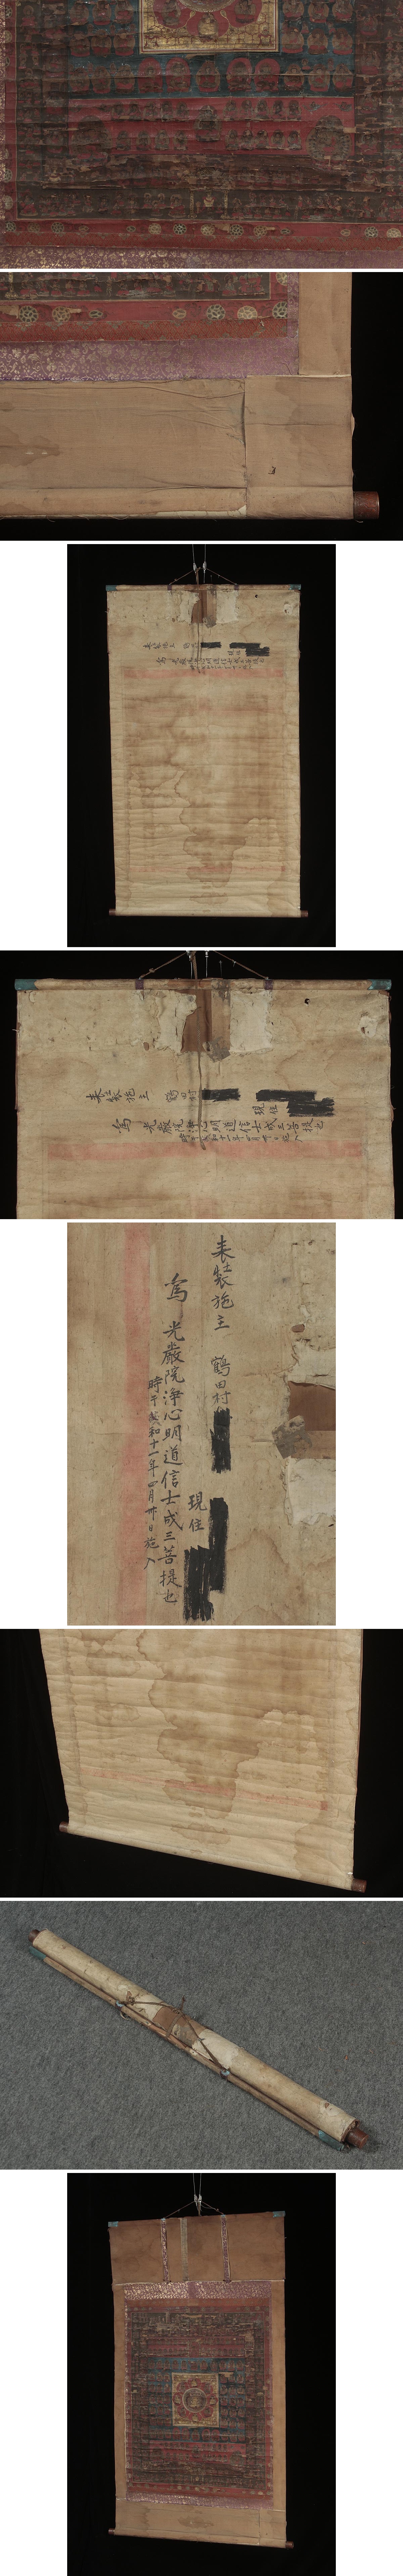 表装施主 鶴田村
現住
為 光嚴院淨心明道信士成三菩提也
時于昭和十一年四月卅日施入